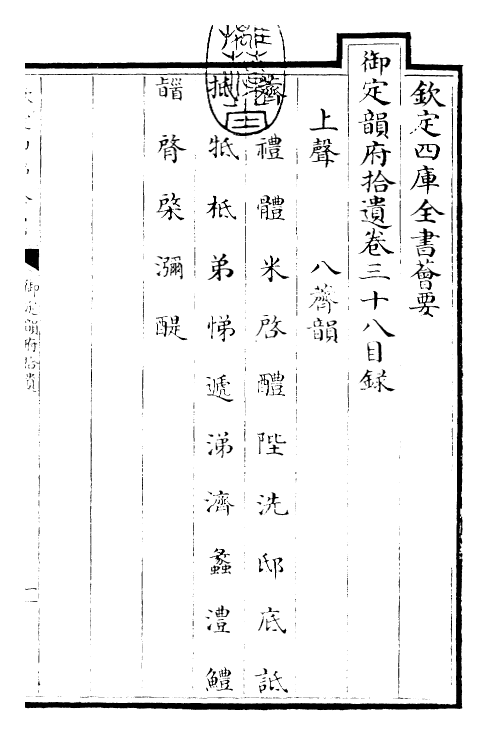 欽定四庫全書薈要
御定韻府拾遺卷三十八目録
上聲 八薺韻
薺禮體米啓醴陛洗邸底詆
抵牴柢弟悌遞涕濟蠡澧鱧
䭫
棨瀰醍
御定韻府拾遺